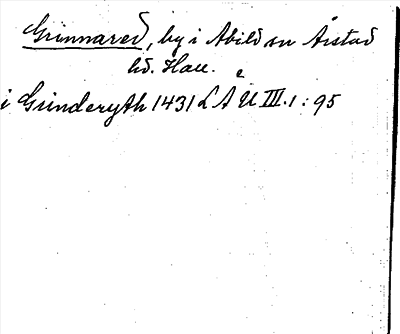 Grinnared, by i Abild sn Årstad
hd. Hall.
i Grinderyth 1431 LAU III.1:95